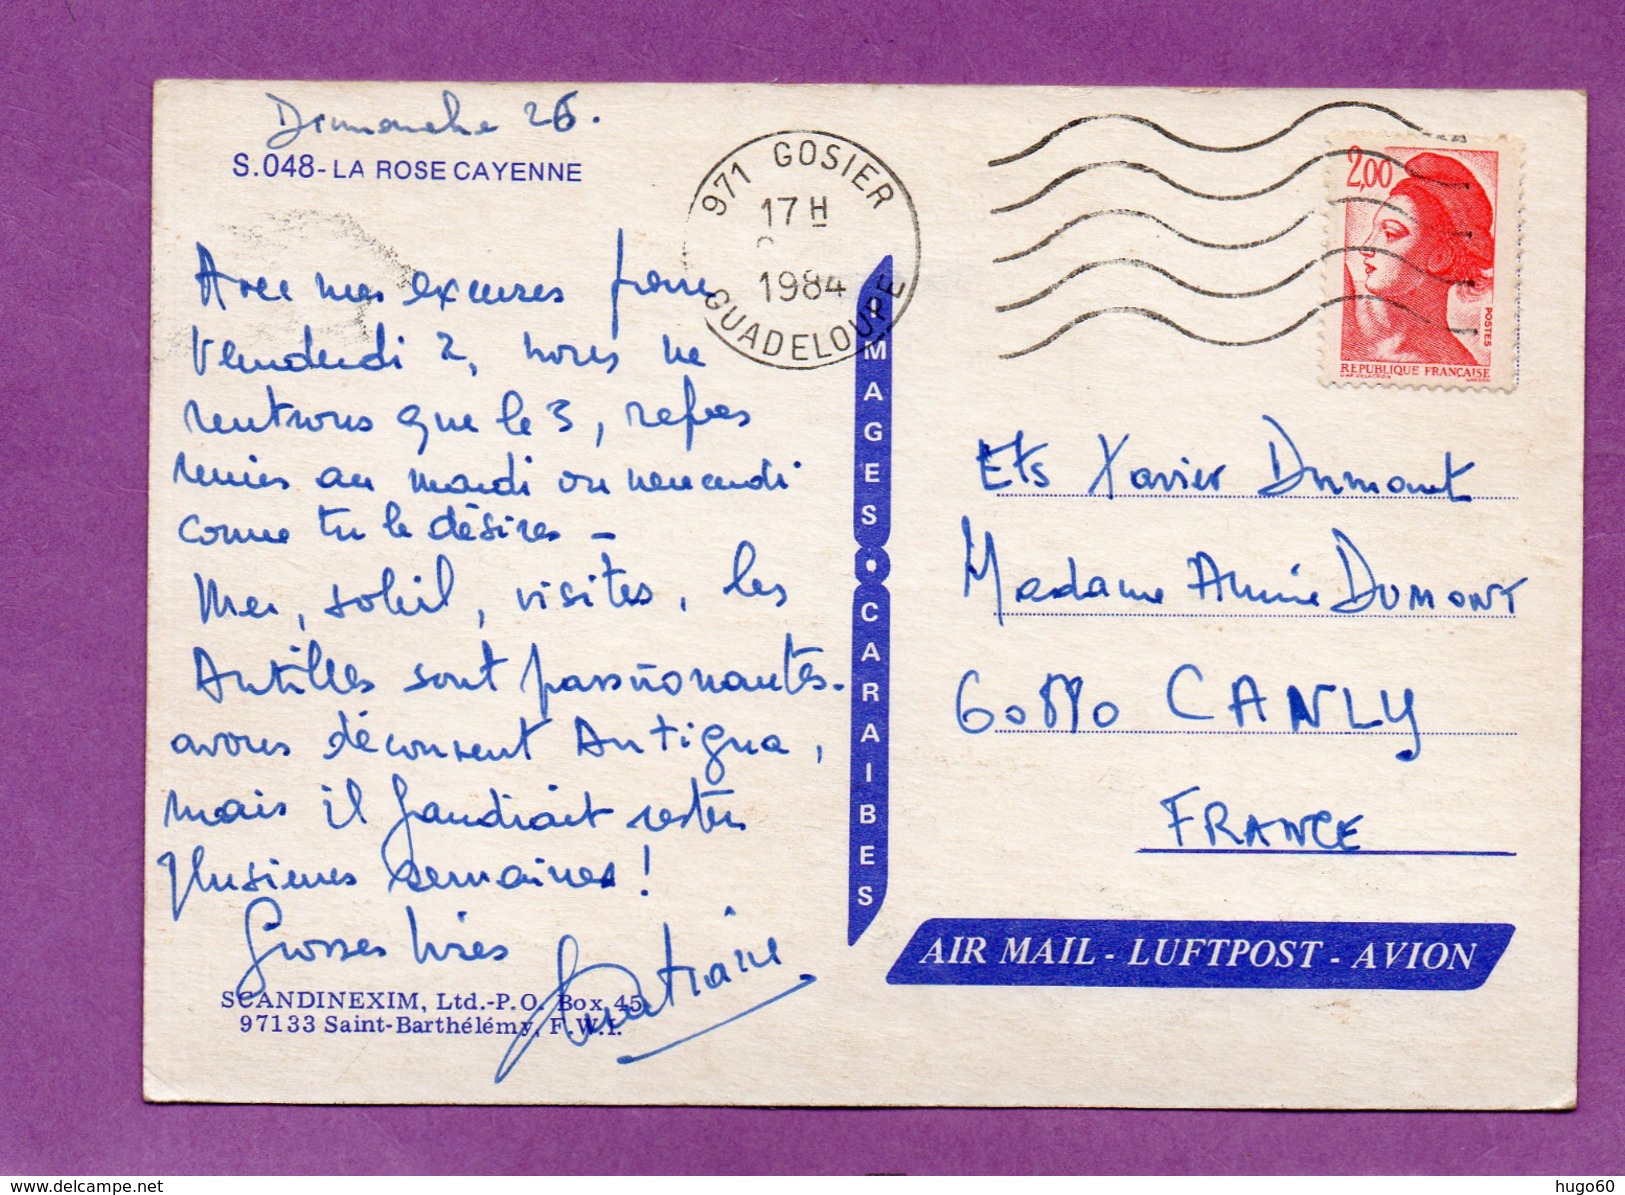 Dimanche 26.
S.048-LA ROSE CAYENNE
Avec mes excuses pour
Vendredi 2, nous ne
rentrons que le 3, repas
remis au mardi ou mercredi
comme tu le désires -
Mer, soleil, visites, les
Antilles sont passionantes.
avons découvert Antigua,
mais il faudrait rester
plusieurs semaines!
Grosses bises
SCANDINEXIM, Ltd.-P.O. Box 45
97133 Saint-Barthélémy, F.W.I.
971 GOSIER
17 H
1984
GUADELOUPE
IMAGES • CARAIBES
2,00
POSTES
REPUBLIQUE FRANÇAISE
Ets Xavier Dumont
Madame Annie DUMONT
60680 CANLY
FRANCE
AIR MAIL - LUFTPOST - AVION
www.delcampe.net
hugo60